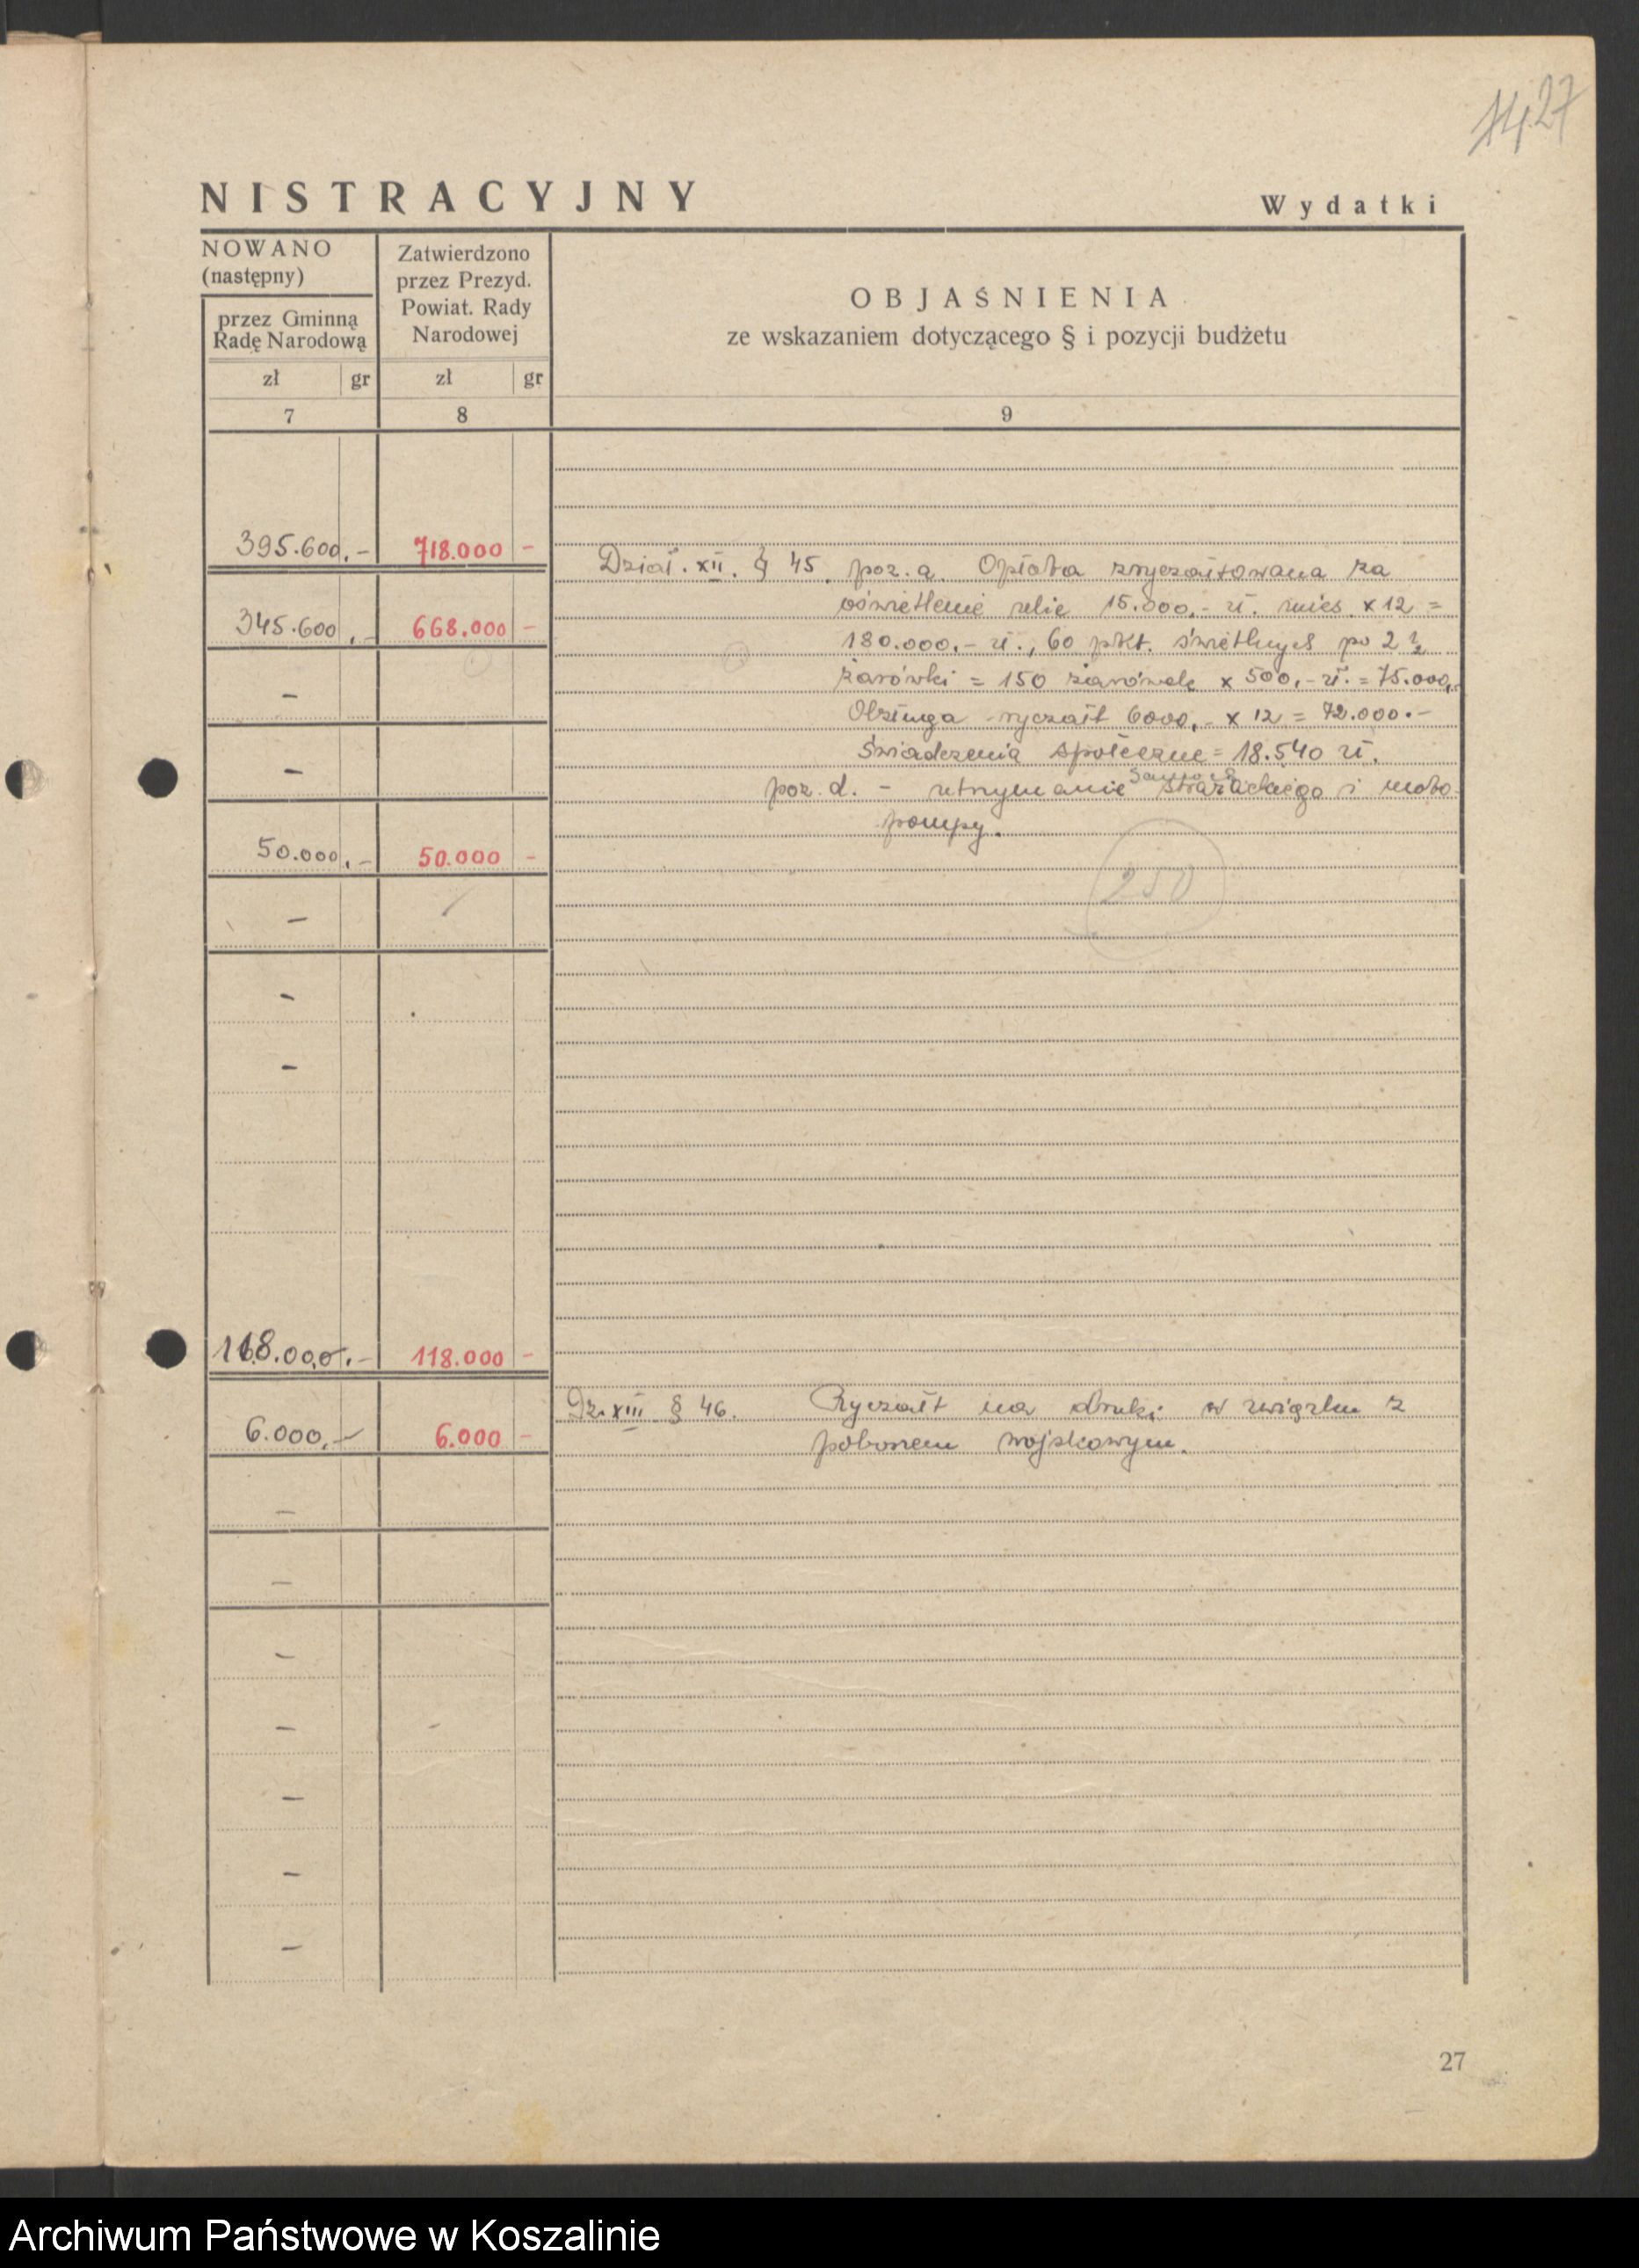 27
NISTRACYJNY
Wydatki
NOWANO
(następny)
przez Gminną
Radę Narodową
zł gr
7
Zatwierdzono
przez Prezyd.
Powiat. Rady
Narodowej
zł gr
8
OBJAŚNIENIA
ze wskazaniem dotyczącego § i pozycji budżetu
9
395.600.- 718.000 -
Dział. XII. § 45. poz. a. Opłata zryczałtowana za
oświetlenie ulic 15.000,- zł. mies. x 12 =
345.600.- 668.000 -
180.000.- zł., 60 pkt. świetlnych po 2 ½
żarówki = 150 żarówek x 500,- zł. = 75.000,-
-
Obsługa ryczałt 6000,- x 12 = 72.000.-
świadczenia społeczne = 18.540 zł.
-
poz. d. - utrzymanie samoch. strażackiego i moto
pompy.
50.000,- 50.000 -
250
-
-
-
118.000.- 118.000 -
Dz. XIII § 46. Ryczałt na druki w związku z
6.000,- 6.000 -
poborem wojskowym.
-
-
-
- -
-
-
-
27
Archiwum Państwowe w Koszalinie